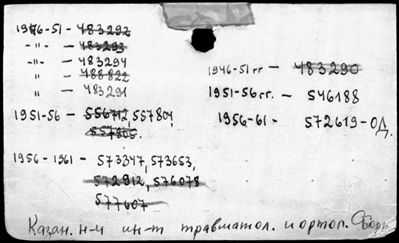 1946-51 - 483292
-"- - 483293
-"- - 483294
" - 488822
" - 483291
1951-56 - 556712, 557804,
557805.
1956-1961 - 573347, 573653,
572912, 576078
577607
1946-51 гг - 483290
1951-56 гг. - 546188
1956-61 - 572619-ОД.
Казан. н-и ин-т травматол. и ортоп.